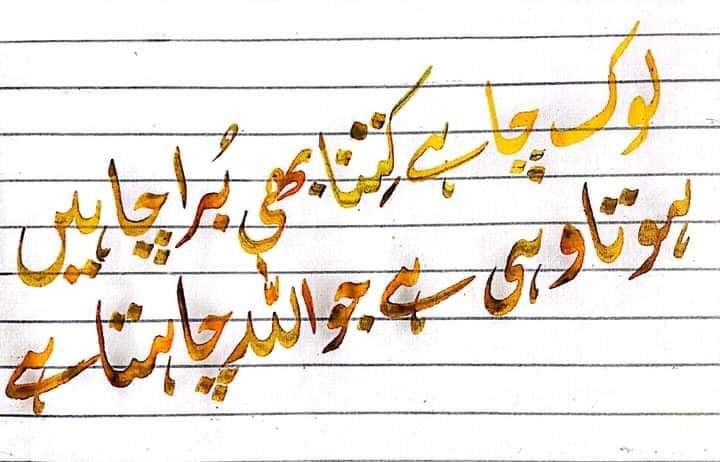 لوگ چاہے کتنا بھی بُرا چاہیں
ہوتا وہی ہے جو اللہ چاہتا ہے